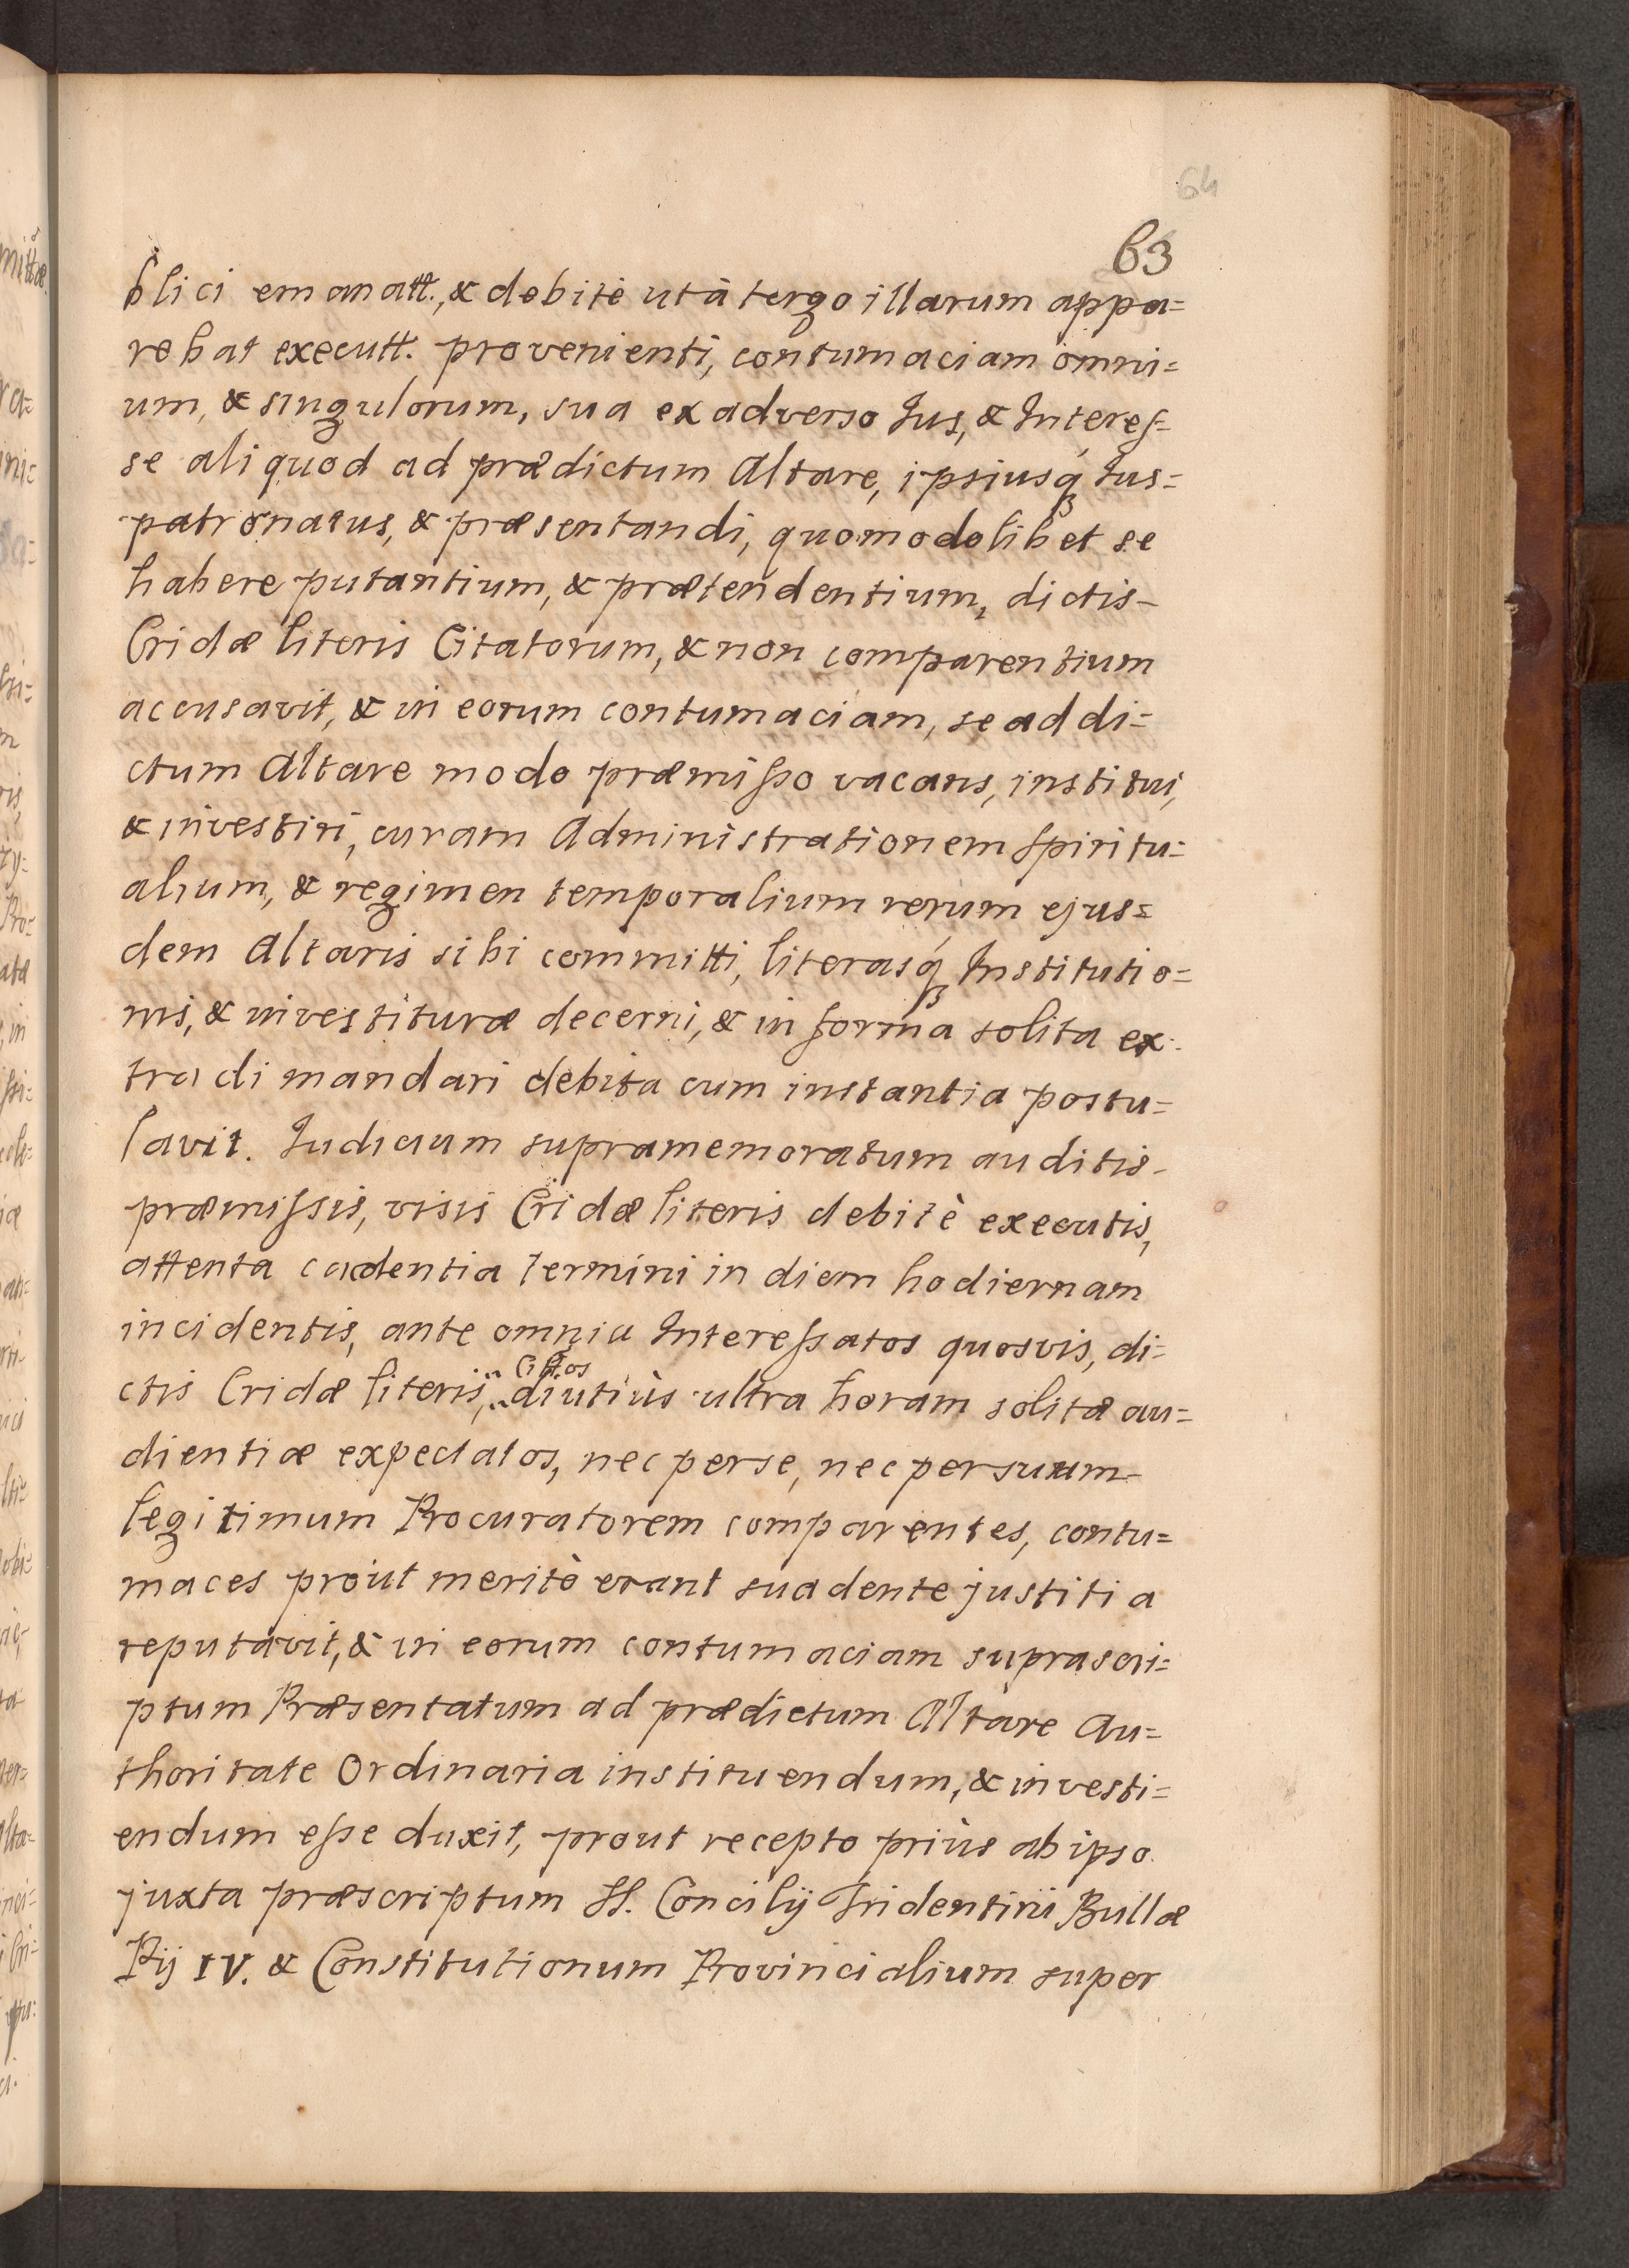 64
63
blici emanatt., & debitè ut à tergo illarum appa=
rebat executt. provenienti, contumaciam omni=
um, & singulorum, sua ex adverso Jus, & Interes=
se aliquod ad prædictum Altare, ipsiusq́ꝫ Jus=
patronatus, & præsentandi, quomodolibet se
habere putantium, & prætendentium, dictis-
Cridæ literis Citatorum, & non comparentium
accusavit, & in eorum contumaciam, se ad di=
ctum Altare modo præmisso vacans, institui,
& investiri, curam Administrationem spiritu=
alium, & regimen temporalium rerum ejus=
dem Altaris sibi committi, literasq́ꝫ Institutio=
nis, & investituræ decerni, & in forma solita ex-
tradi mandari debita cum instantia postu=
lavit. Judicium supramemoratum auditis-
præmissis, visis Cridæ literis debitè executis,
attenta cadentia termini in diem hodiernam
incidentis, ante omnia Interessatos quosvis, di=
Citatos
ctis Cridæ literis, diutiùs ultra horam solitæ au=
dientiæ expectatos, nec per se, nec per suum-
legitimum Procuratorem comparentes, contu=
maces prout meritò erant suadente justitia
reputavit, & in eorum contumaciam suprascri=
ptum Præsentatum ad prædictum Altare Au=
thoritate Ordinaria instituendum, & investi=
endum esse duxit, prout recepto priùs ab ipso
juxta præscriptum SS. Concilij Tridentini Bullæ
Pij IV. & Constitutionum Provincialium super